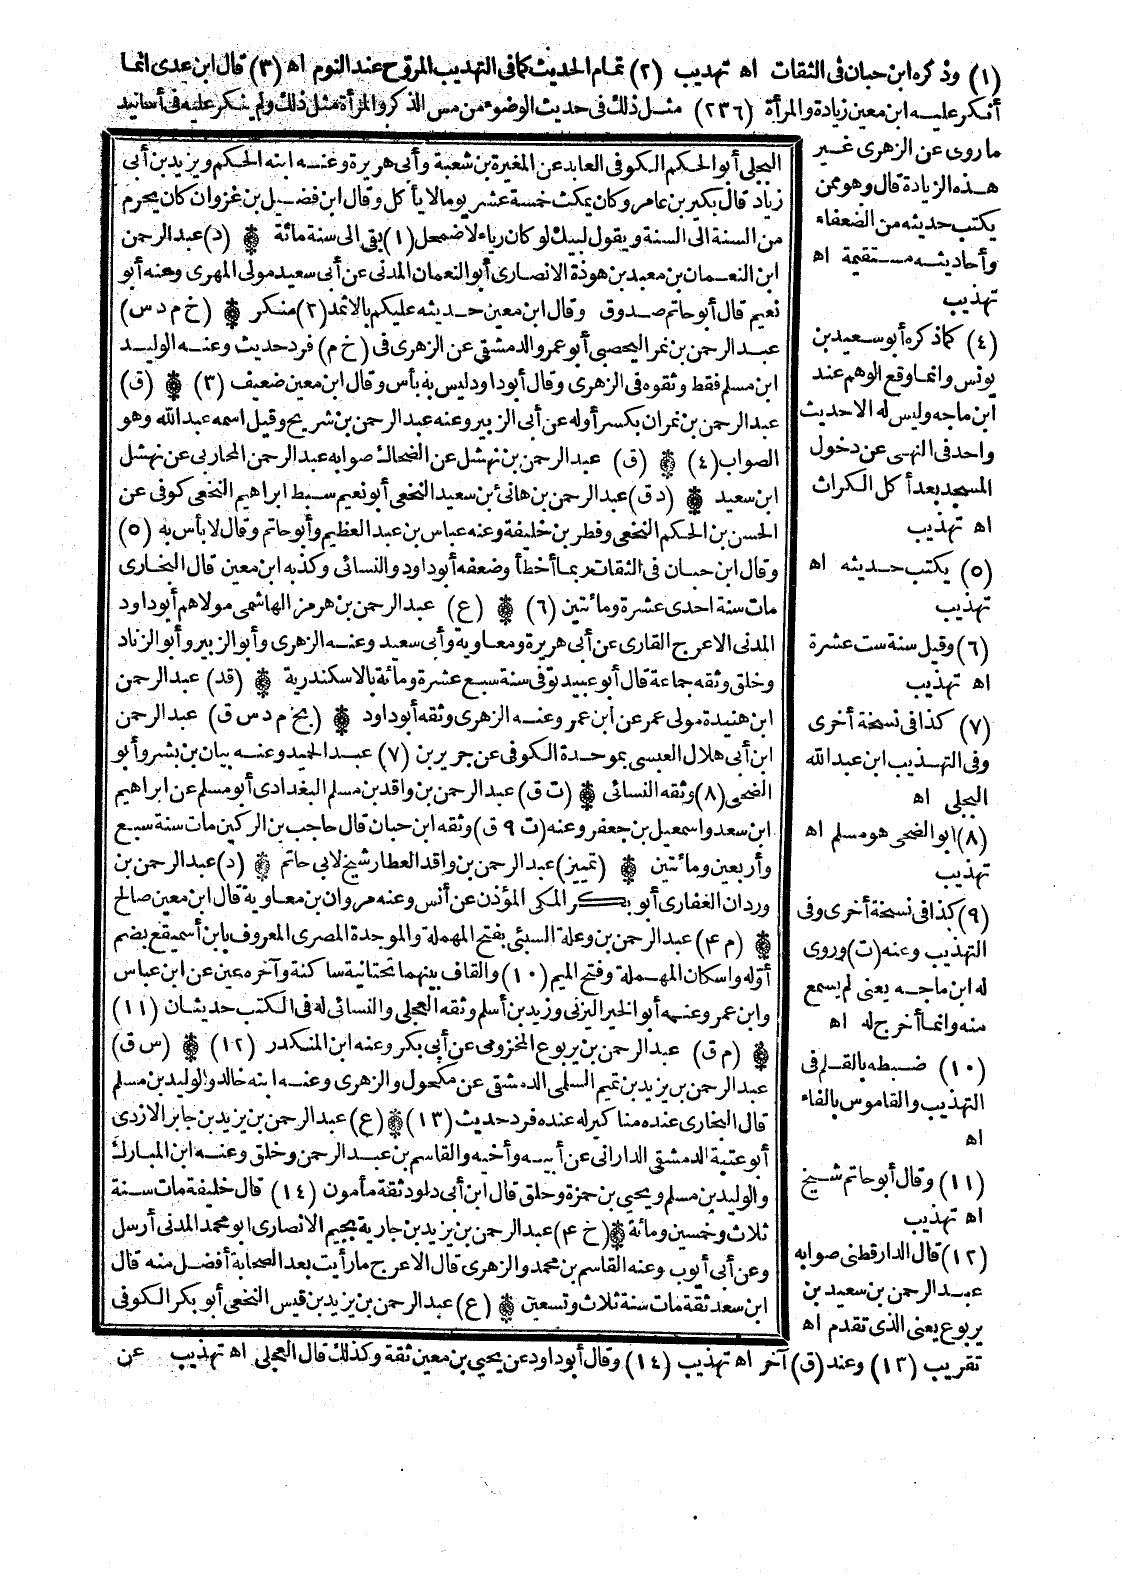 (١) وذكره ابن حبان فى الثقات اه تهذيب (٢) تمام الحديث كما فى التهذيب المروّح عند النوم اه (٣) قال ابن عدى انما
أنكر عليه ابن معين زيادة والمرأة (٢٣٦) مثل ذلك فى حديث الوضوء من مس الذكر والمرأة مثل ذلك ولم ينكر عليه فى أسانيد
ما روى عن الزهرى غير
هذه الزيادة قال وهو ممن
يكتب حديثه من الضعفاء
وأحاديثه مستقيمة اه
تهذيب
(٤) كما ذكره أبو سعيد بن
يونس وانما وقع الوهم عند
ابن ماجه وليس له الا حديث
واحد فى النهى عن دخول
المسجد بعد أكل الكراث
اه تهذيب
(٥) يكتب حديثه اه
تهذيب
(٦) وقيل سنة ست عشرة
اه تهذيب
(٧) كذا فى نسخة أخرى
وفى التهذيب ابن عبد الله
البجلى اه
(٨) ابو الضحى هو مسلم اه
تهذيب
(٩) كذا فى نسخة أخرى وفى
التهذيب وعنه (ت) وروى
له ابن ماجه يعنى لم يسمع
منه وانما أخرج له اه
(١٠) ضبطه بالقلم فى
التهذيب والقاموس بالفاء
اه
(١١) وقال أبو حاتم شيخ
اه تهذيب
(١٢) قال الدارقطنى صوابه
عبد الرحمن بن سعيد بن
يربوع يعنى الذى تقدم اه
تقريب (١٣) وعند (ق) آخر اه تهذيب (١٤) وقال أبو داود عن يحيى بن معين ثقة وكذلك قال العجلى اه تهذيب
البجلى أبو الحكم الكوفى العابد عن المغيرة بن شعبة وأبى هريرة وعنه ابنه الحكم ويزيد بن أبى
زياد قال بكير بن عامر وكان يمكث خمسة عشر يوما لا يأكل وقال ابن فضيل بن غزوان كان يحرم
من السنة الى السنة ويقول لبيك لو كان رياء لاضمحل (١) بقى الى سنة مائة ❁ (د) عبد الرحمن
ابن النعمان بن معبد بن هوذة الانصارى أبو النعمان المدنى عن أبى سعيد مولى المهرى وعنه أبو
نعيم قال أبو حاتم صدوق وقال ابن معين حديثه عليكم بالاثمد (٢) منكر ❁ (خ م د س)
عبد الرحمن بن نمر اليحصبى أبو عمرو الدمشقى عن الزهرى فى (خ م) فرد حديث وعنه الوليد
ابن مسلم فقط وثقوه فى الزهرى وقال أبو داود ليس به بأس وقال ابن معين ضعيف (٣) ❁ (ق)
عبد الرحمن بن نمران بكسر أوله عن أبى الزبير وعنه عبد الرحمن بن شريح وقيل اسمه عبد الله وهو
الصواب (٤) ❁ (ق) عبد الرحمن بن نهشل عن الضحاك صوابه عبد الرحمن المحاربى عن نهشل
ابن سعيد ❁ (د ق) عبد الرحمن بن هانئ بن سعيد النخعى أبو نعيم سبط ابراهيم النخعى كوفى عن
الحسن بن الحكم النخعى وفطر بن خليفة وعنه عباس بن عبد العظيم وأبو حاتم وقال لا بأس به (٥)
وقال ابن حبان فى الثقات ربما أخطأ وضعفه أبو داود والنسائى وكذبه ابن معين قال البخارى
مات سنة احدى عشرة ومائتين (٦) ❁ (ع) عبد الرحمن بن هرمز الهاشمى مولاهم أبو داود
المدنى الاعرج القارى عن أبى هريرة ومعاوية وأبى سعيد وعنه الزهرى وأبو الزبير وأبو الزناد
وخلق وثقه جماعة قال أبو عبيد توفى سنة سبع عشرة ومائة بالاسكندرية ❁ (قد) عبد الرحمن
ابن هنيدة مولى عمر عن ابن عمر وعنه الزهرى وثقه أبو داود ❁ (بخ م د س ق) عبد الرحمن
ابن أبى هلال العبسى بموحدة الكوفى عن جرير بن (٧) عبد الحميد وعنه بيان بن بشر وأبو
الضحى (٨) وثقه النسائى ❁ (ت ق) عبد الرحمن بن واقد بن مسلم البغدادى أبو مسلم عن ابراهيم
ابن سعد واسمعيل بن جعفر وعنه (ت ٩ ق) وثقه ابن حبان قال حاجب بن الركين مات سنة سبع
وأربعين ومائتين ❁ (تمييز) عبد الرحمن بن واقد العطار شيخ لابى حاتم ❁ (د) عبد الرحمن بن
وردان الغفارى أبو بكر المكى المؤذن عن أنس وعنه مروان بن معاوية قال ابن معين صالح
❁ (م ٤) عبد الرحمن بن وعلة السبئى بفتح المهملة والموحدة المصرى المعروف بابن أسميقع بضم
أوّله واسكان المهملة وفتح الميم (١٠) والقاف بينهما تحتانية ساكنة وآخره عين عن ابن عباس
وابن عمر وعنه أبو الخير اليزنى وزيد بن أسلم وثقه العجلى والنسائى له فى الكتب حديثان (١١)
❁ (م ق) عبد الرحمن بن يربوع المخزومى عن أبى بكر وعنه ابن المنكدر (١٢) ❁ (س ق)
عبد الرحمن بن يزيد بن تميم السلمى الدمشقى عن مكحول والزهرى وعنه ابنه خالد والوليد بن مسلم
قال البخارى عنده مناكير له عنده فرد حديث (١٣) ❁ (ع) عبد الرحمن بن يزيد بن جابر الازدى
أبو عتبة الدمشقى الدارانى عن أبيه وأخيه والقاسم بن عبد الرحمن وخلق وعنه ابن المبارك
والوليد بن مسلم ويحيى بن حمزة وخلق قال ابن أبى داود ثقة مأمون (١٤) قال خليفة مات سنة
ثلاث وخمسين ومائة ❁ (خ ٤) عبد الرحمن بن يزيد بن جارية بجيم الانصارى ابو محمد المدنى أرسل
وعن أبى أيوب وعنه القاسم بن محمد والزهرى قال الاعرج ما رأيت بعد الصحابة أفضل منه قال
ابن سعد ثقة مات سنة ثلاث وتسعين ❁ (ع) عبد الرحمن بن يزيد بن قيس النخعى أبو بكر الكوفى
عن